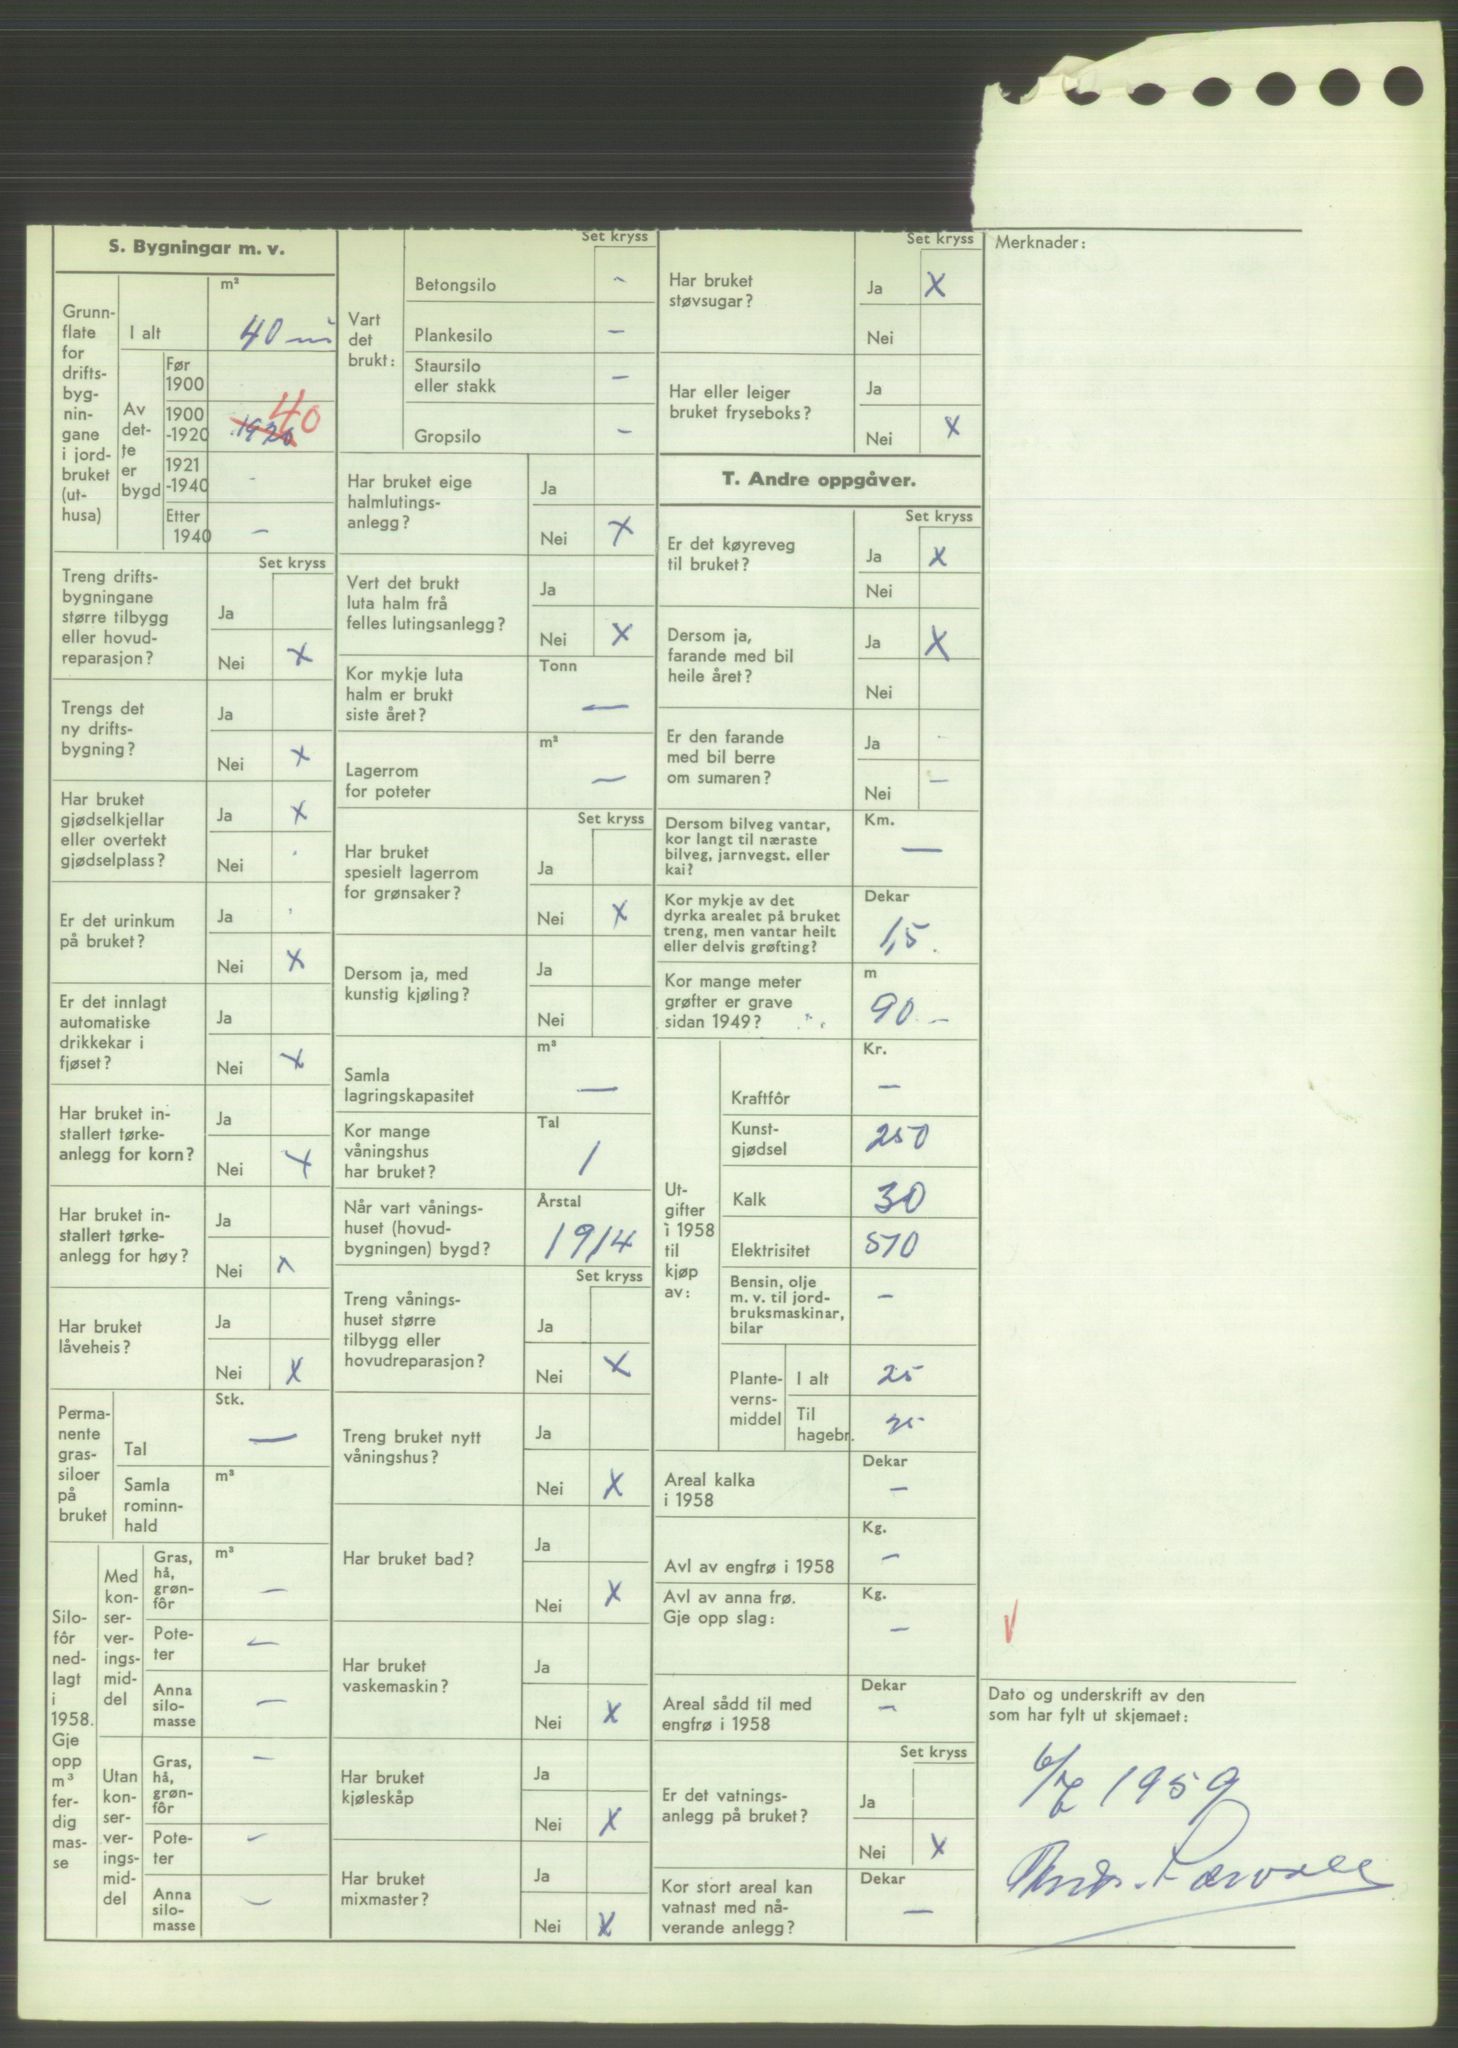 S. Bygningar m. v.
Grunnflate for driftsbygningane i jordbruket (uthusa)
m²
I alt 40 m²
Av dette er bygd
Før 1900
1900-1920 1920 40
1921-1940 -
Etter 1940 —
Set kryss
Treng driftsbygningane større tilbygg eller hovudreparasjon?
Ja
Nei X
Trengs det ny driftsbygning?
Ja
Nei X
Har bruket gjødselkjellar eller overtekt gjødselplass?
Ja X
Nei
Er det urinkum på bruket?
Ja
Nei X
Er det innlagt automatiske drikkekar i fjøset?
Ja
Nei X
Har bruket installert tørkeanlegg for korn?
Ja
Nei X
Har bruket installert tørkeanlegg for høy?
Ja
Nei X
Har bruket låveheis?
Ja
Nei X
Permanente grassiloer på bruket
Stk.
Tal —
Samla rominnhald
m³
Silofôr nedlagt i 1958. Gje opp m³ ferdig masse
m³
Med konserveringsmiddel
Gras, hå, grønfôr —
Poteter —
Anna silomasse —
Utan konserveringsmiddel
Gras, hå, grønfôr —
Poteter —
Anna silomasse —
Set kryss
Vart det brukt:
Betongsilo -
Plankesilo —
Staursilo eller stakk —
Gropsilo —
Har bruket eige halmlutingsanlegg?
Ja
Nei X
Vert det brukt luta halm frå felles lutingsanlegg?
Ja
Nei X
Kor mykje luta halm er brukt siste året?
Tonn
—
Lagerrom for poteter
m³
—
Set kryss
Har bruket spesielt lagerrom for grønsaker?
Ja
Nei X
Dersom ja, med kunstig kjøling?
Ja
Nei
Samla lagringskapasitet
m³
—
Kor mange våningshus har bruket?
Tal
1
Når vart våningshuset (hovudbygningen) bygd?
Årstal
1914
Set kryss
Treng våningshuset større tilbygg eller hovudreparasjon?
Ja
Nei X
Treng bruket nytt våningshus?
Ja
Nei X
Har bruket bad?
Ja
Nei X
Har bruket vaskemaskin?
Ja
Nei X
Har bruket kjøleskåp
Ja
Nei X
Har bruket mixmaster?
Ja
Nei X
Set kryss
Har bruket støvsugar?
Ja X
Nei
Har eller leiger bruket fryseboks?
Ja
Nei X
T. Andre oppgåver.
Set kryss
Er det køyreveg til bruket?
Ja X
Nei
Dersom ja, farande med bil heile året?
Ja X
Nei
Er den farande med bil berre om sumaren?
Ja
Nei —
Dersom bilveg vantar, kor langt til næraste bilveg, jarnvegst. eller kai?
Km.
—
Kor mykje av det dyrka arealet på bruket treng, men vantar heilt eller delvis grøfting?
Dekar
1,5
Kor mange meter grøfter er grave sidan 1949?
m
90 —
Utgifter i 1958 til kjøp av:
Kr.
Kraftfôr —
Kunstgjødsel 250
Kalk 30
Elektrisitet 510
Bensin, olje m. v. til jordbruksmaskinar, bilar —
Plantevernsmiddel
I alt 25
Til hagebr. 25
Areal kalka i 1958
Dekar
—
Avl av engfrø i 1958
Kg.
—
Avl av anna frø. Gje opp slag:
Kg.
—
Areal sådd til med engfrø i 1958
Dekar
—
Set kryss
Er det vatningsanlegg på bruket?
Ja
Nei X
Kor stort areal kan vatnast med nåverande anlegg?
Dekar
—
Merknader:
Dato og underskrift av den
som har fylt ut skjemaet:
1959